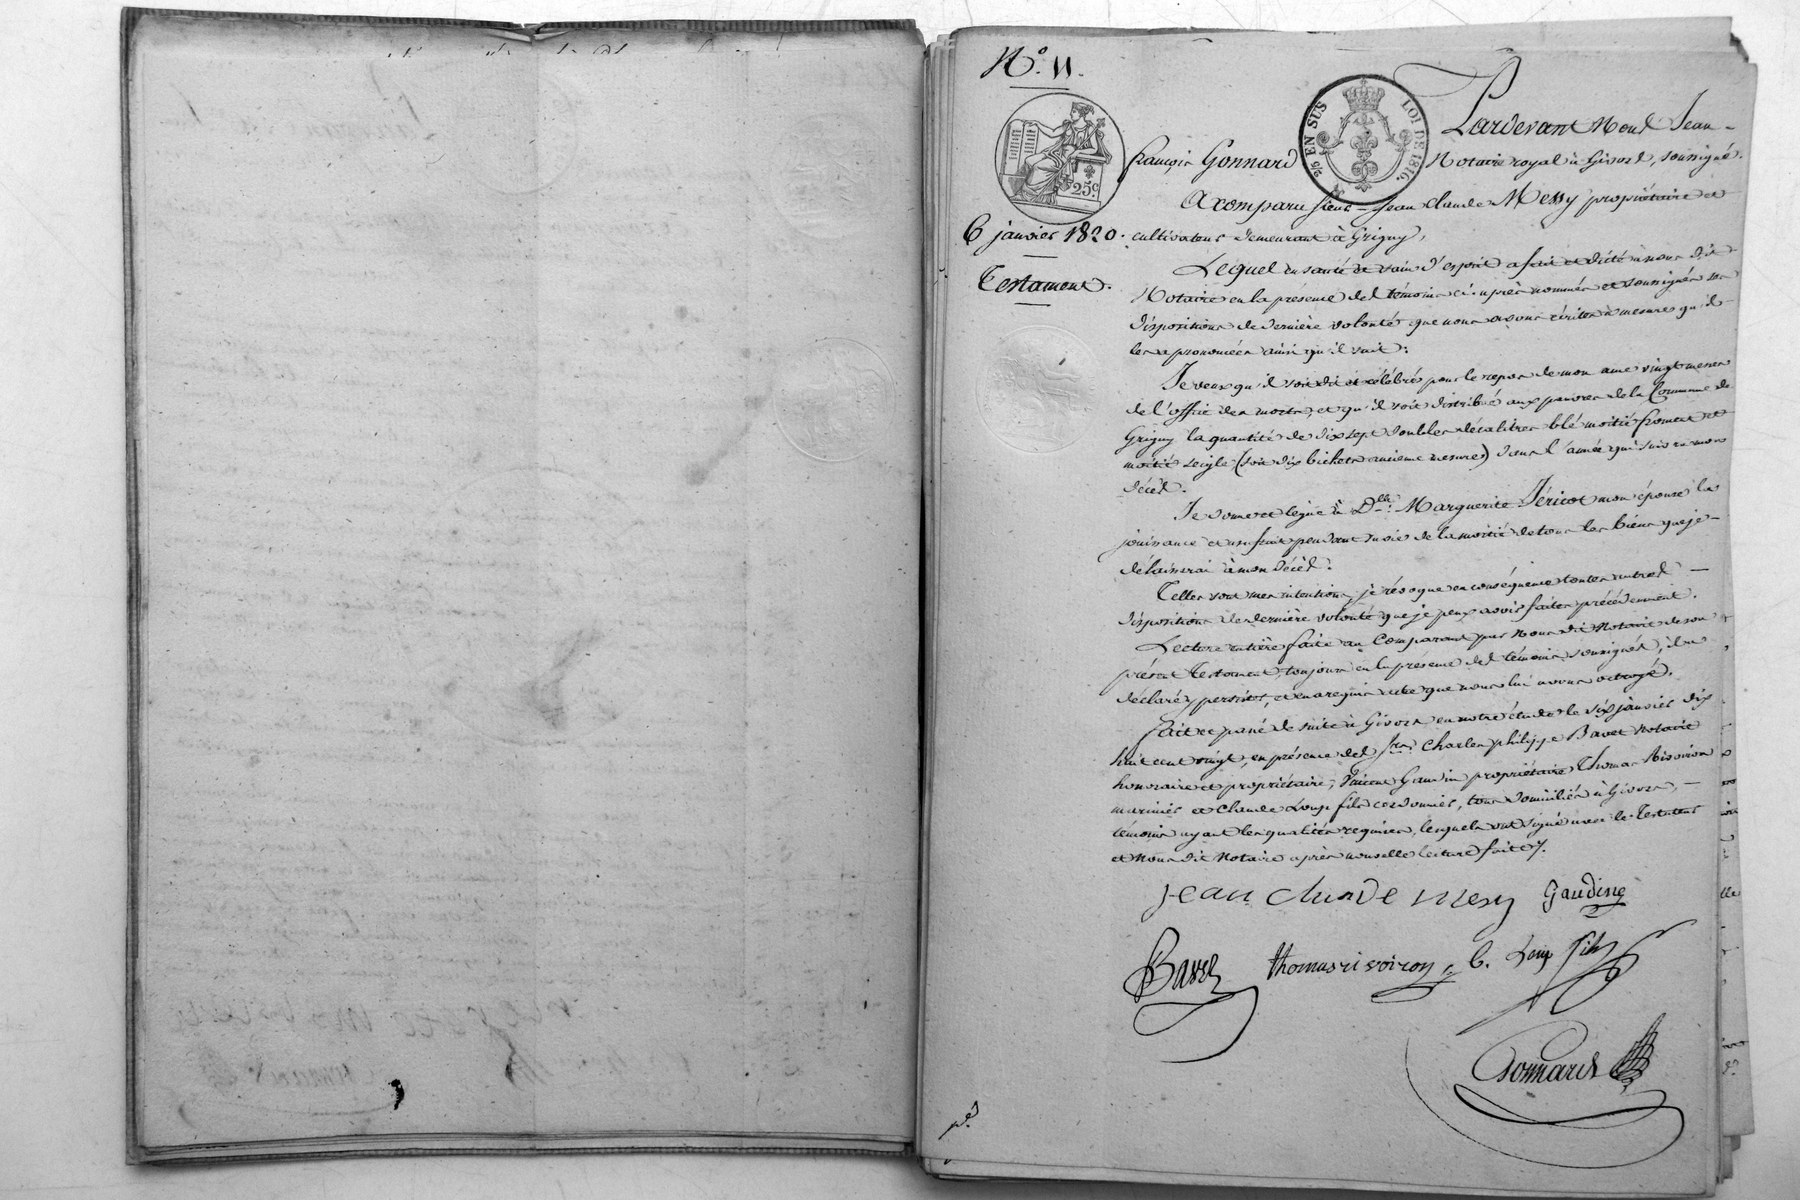 N.° 11.
25 c
¼ EN SUS LOI DE 1816.
6 janvier 1820.
Testament.
Pardevant Nous Jean-
françois Gonnard Notaire royal à Givors, soussigné.
A comparu sieur Jean Claude Messy propriétaire et
cultivateur demeurant à Grigny,
Lequel en santé et sain d'esprit a fait et dicté à nous dit
Notaire en la présence des témoins ci-après nommés et soussignés ses
dispositions de dernière volonté que nous avons écrites à mesure qu'il
les a prononcées ainsi qu'il suit:
Je veux qu'il soit dit et célébré pour le repos de mon ame vingt messes
de l'office des morts, et qu'il soit distribué aux pauvres de la Commune de
Grigny la quantité de dix sept doubles décalitres blé moitié froment et
moitié seigle (soit dix bichets ancienne mesure) dans l'année qui suivra mon
décès.
Je donne et lègue à D.lle Marguerite Jéricot mon épouse la
jouissance et usufruit pendant sa vie de la moitié de tous les biens que je
délaisserai à mon décès.
Telles sont mes intentions, je révoque en conséquence toutes autres
dispositions de dernière volonté que je peux avoir faites précédemment.
Lecture entière faite au Comparant par Nous dit Notaire de son
présent Testament, toujours en la présence des témoins soussignés, il a
déclaré y persister, et en a requis acte que nous lui avons octroyé.
fait et passé de suite à Givors en notre étude le six janvier dix
huit cent vingt, en présence des srs Charles philippe Bavet Notaire
honoraire et propriétaire, Vincent Gaudin propriétaire Thomas Risvoiron
marinier et Claude Loup fils cordonnier, tous domiciliés à Givors,
témoins ayant les qualités requises, lesquels ont signé avec le Testateur
et Nous dit Notaire après nouvelle lecture faite.
jean claude mesy gaudin
Bavet thomas risvoiron C. Loup fils
Gonnard